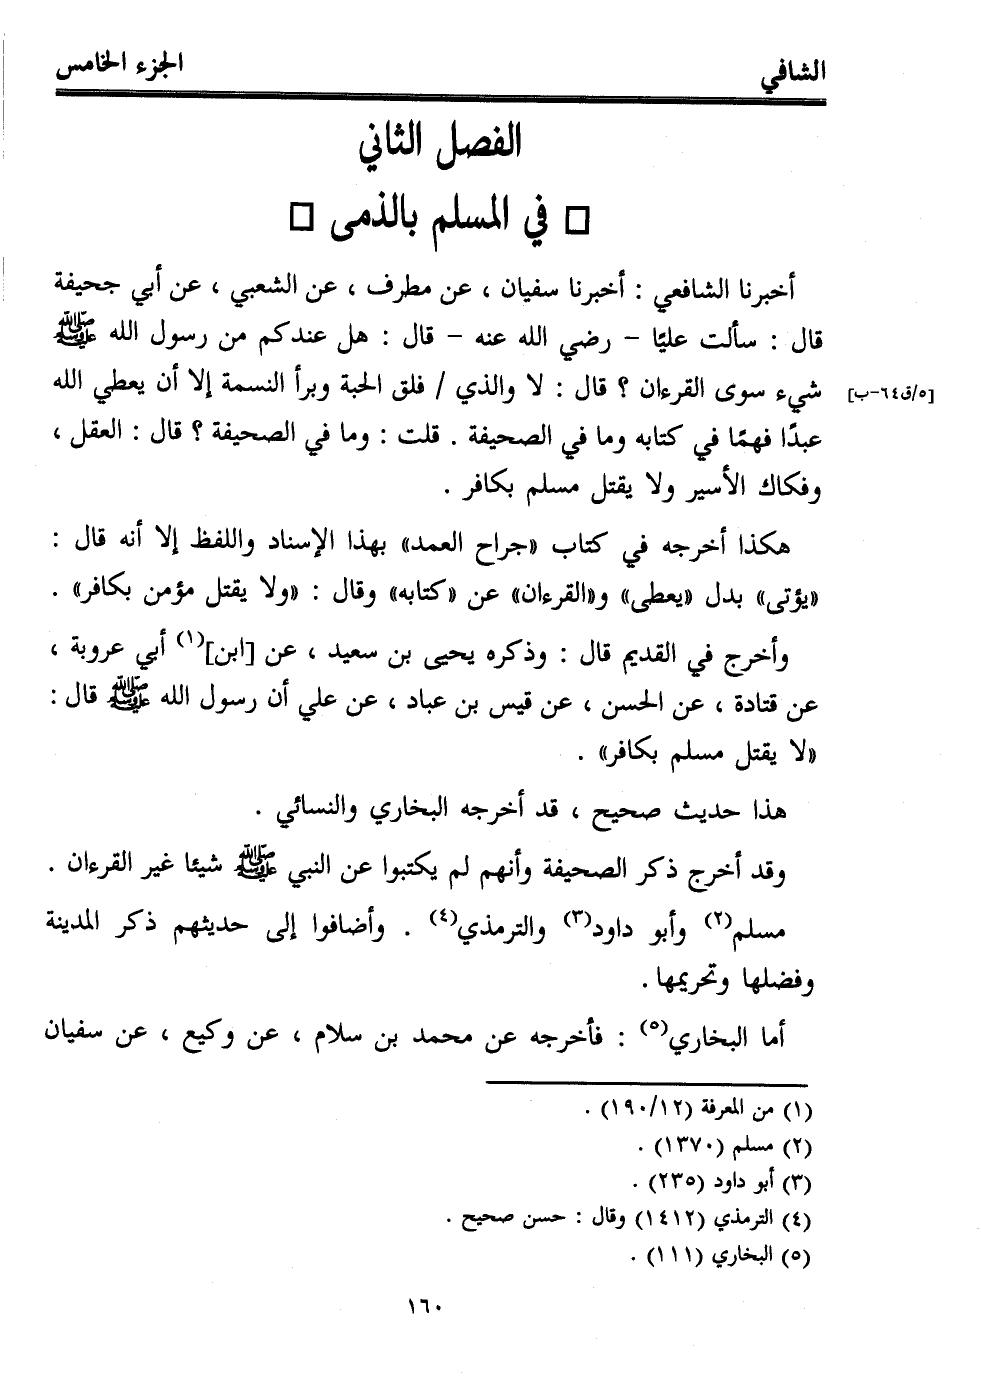 الشافي الجزء الخامس
الفصل الثاني
□ في المسلم بالذمى □
أخبرنا الشافعي : أخبرنا سفيان ، عن مطرف ، عن الشعبي ، عن أبي جحيفة
قال : سألت عليًا – رضي الله عنه – قال : هل عندكم من رسول الله ﷺ
شيء سوى القرءان ؟ قال : لا والذي / فلق الحبة وبرأ النسمة إلا أن يعطي الله [٥/ق٦٤-ب]
عبدًا فهمًا في كتابه وما في الصحيفة . قلت : وما في الصحيفة ؟ قال : العقل ،
وفكاك الأسير ولا يقتل مسلم بكافر .
هكذا أخرجه في كتاب «جراح العمد» بهذا الإسناد واللفظ إلا أنه قال :
«يؤتى» بدل «يعطى» و«القرءان» عن «كتابه» وقال : «ولا يقتل مؤمن بكافر» .
وأخرج في القديم قال : وذكره يحيى بن سعيد ، عن [ابن](١) أبي عروبة ،
عن قتادة ، عن الحسن ، عن قيس بن عباد ، عن علي أن رسول الله ﷺ قال :
«لا يقتل مسلم بكافر» .
هذا حديث صحيح ، قد أخرجه البخاري والنسائي .
وقد أخرج ذكر الصحيفة وأنهم لم يكتبوا عن النبي ﷺ شيئا غير القرءان .
مسلم(٢) وأبو داود(٣) والترمذي(٤) . وأضافوا إلى حديثهم ذكر المدينة
وفضلها وتحريمها .
أما البخاري(٥) : فأخرجه عن محمد بن سلام ، عن وكيع ، عن سفيان
(١) من المعرفة (١٩٠/١٢) .
(٢) مسلم (١٣٧٠) .
(٣) أبو داود (٢٣٥) .
(٤) الترمذي (١٤١٢) وقال : حسن صحيح .
(٥) البخاري (١١١) .
١٦٠